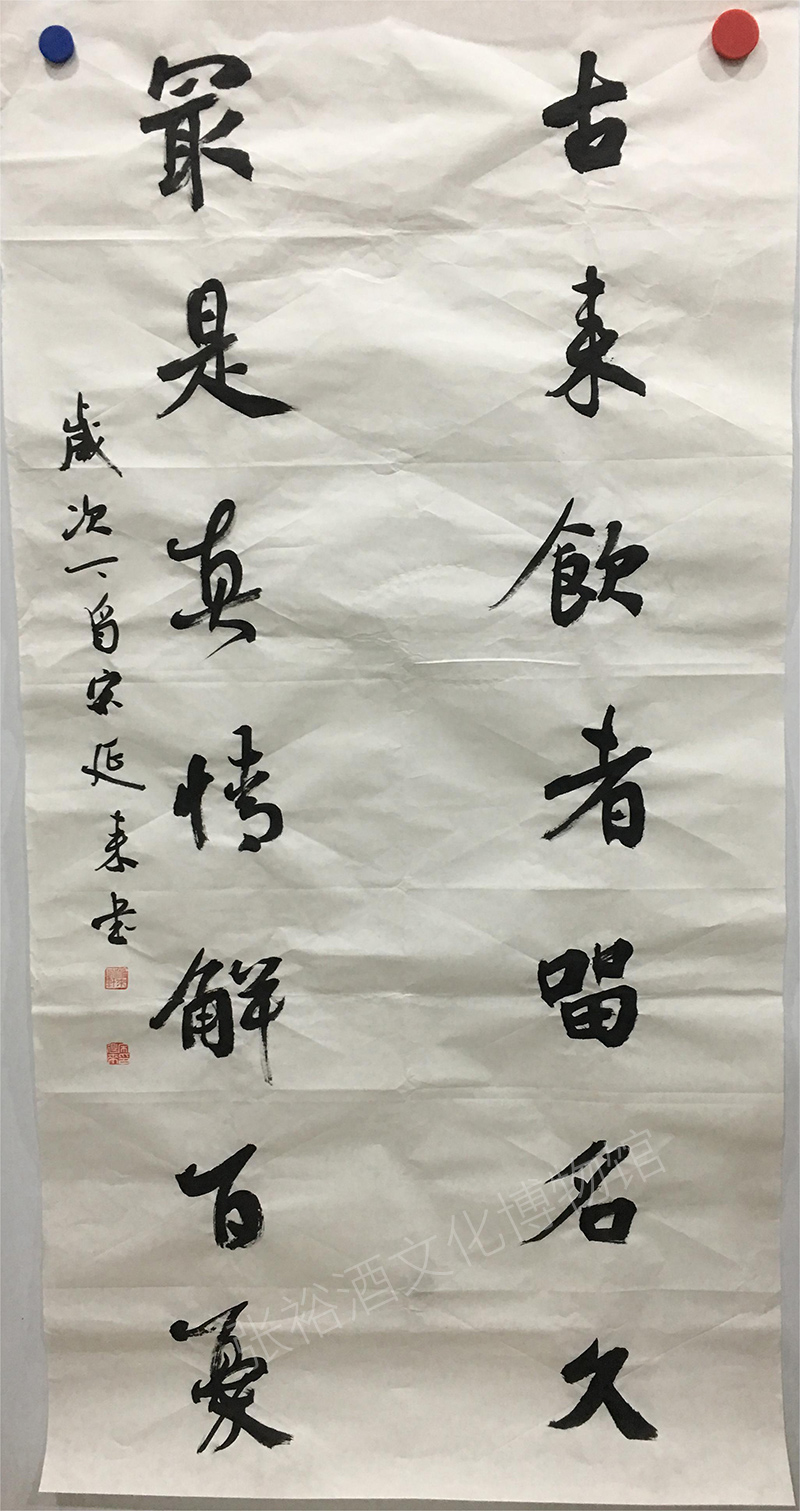 古来飲者留名久
最是真情解百憂
歲次丁酉宋延来書
张裕酒文化博物馆